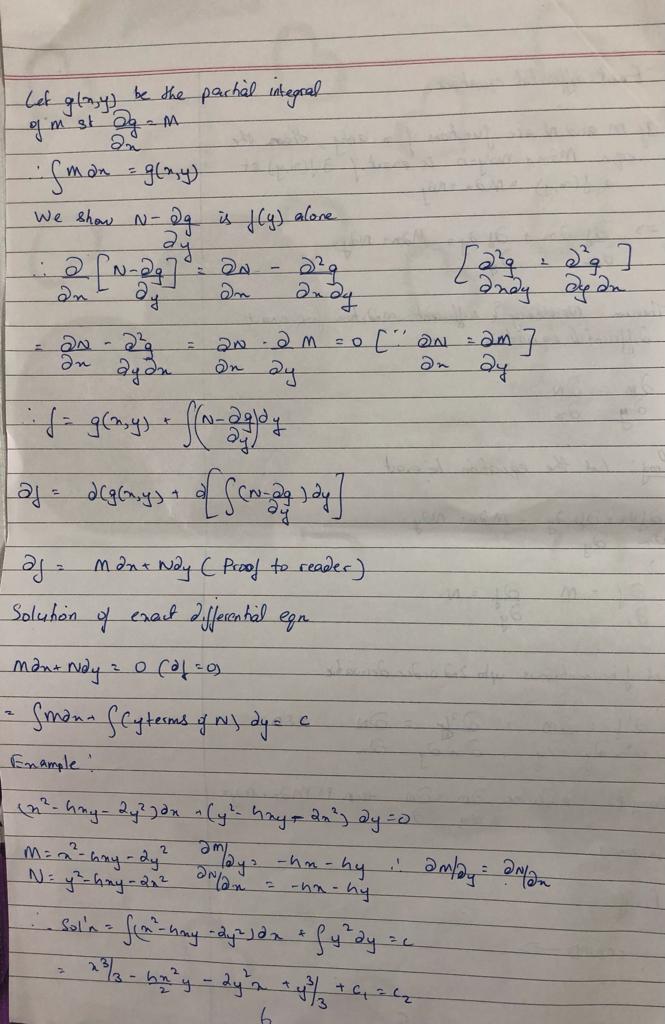 Let g(x,y) be the partial integral
of M st ∂g/∂x = M
∴ ∫M∂x = g(x,y)
We show N - ∂g/∂y is f(y) alone
∴ ∂/∂x [N - ∂g/∂y] = ∂N/∂x - ∂²g/∂x∂y [∂²g/∂x∂y = ∂²g/∂y∂x]
= ∂N/∂x - ∂²g/∂y∂x = ∂N/∂x - ∂/∂y M = 0 [∵ ∂N/∂x = ∂M/∂y]
∴ f = g(x,y) + ∫(N - ∂g/∂y)∂y
∂f = ∂(g(x,y) + ∂[∫(N - ∂g/∂y)∂y]
∂f = M∂x + N∂y (Proof to reader)
Solution of exact differential eqn
M∂x + N∂y = 0 (∂f = 0)
= ∫M∂x + ∫(y terms of N) ∂y = c
Example:
(x² - 4xy - 2y²)∂x + (y² - 4xy - 2x²) ∂y = 0
M = x² - 4xy - 2y² ∂M/∂y = -4x - 4y ∴ ∂M/∂y = ∂N/∂x
N = y² - 4xy - 2x² ∂N/∂x = -4x - 4y
∴ Sol'n = ∫(x² - 4xy - 2y²)∂x + ∫y²∂y = c
= x³/3 - 4x²y/2 - 2y²x + y³/3 + c₁ = c₂